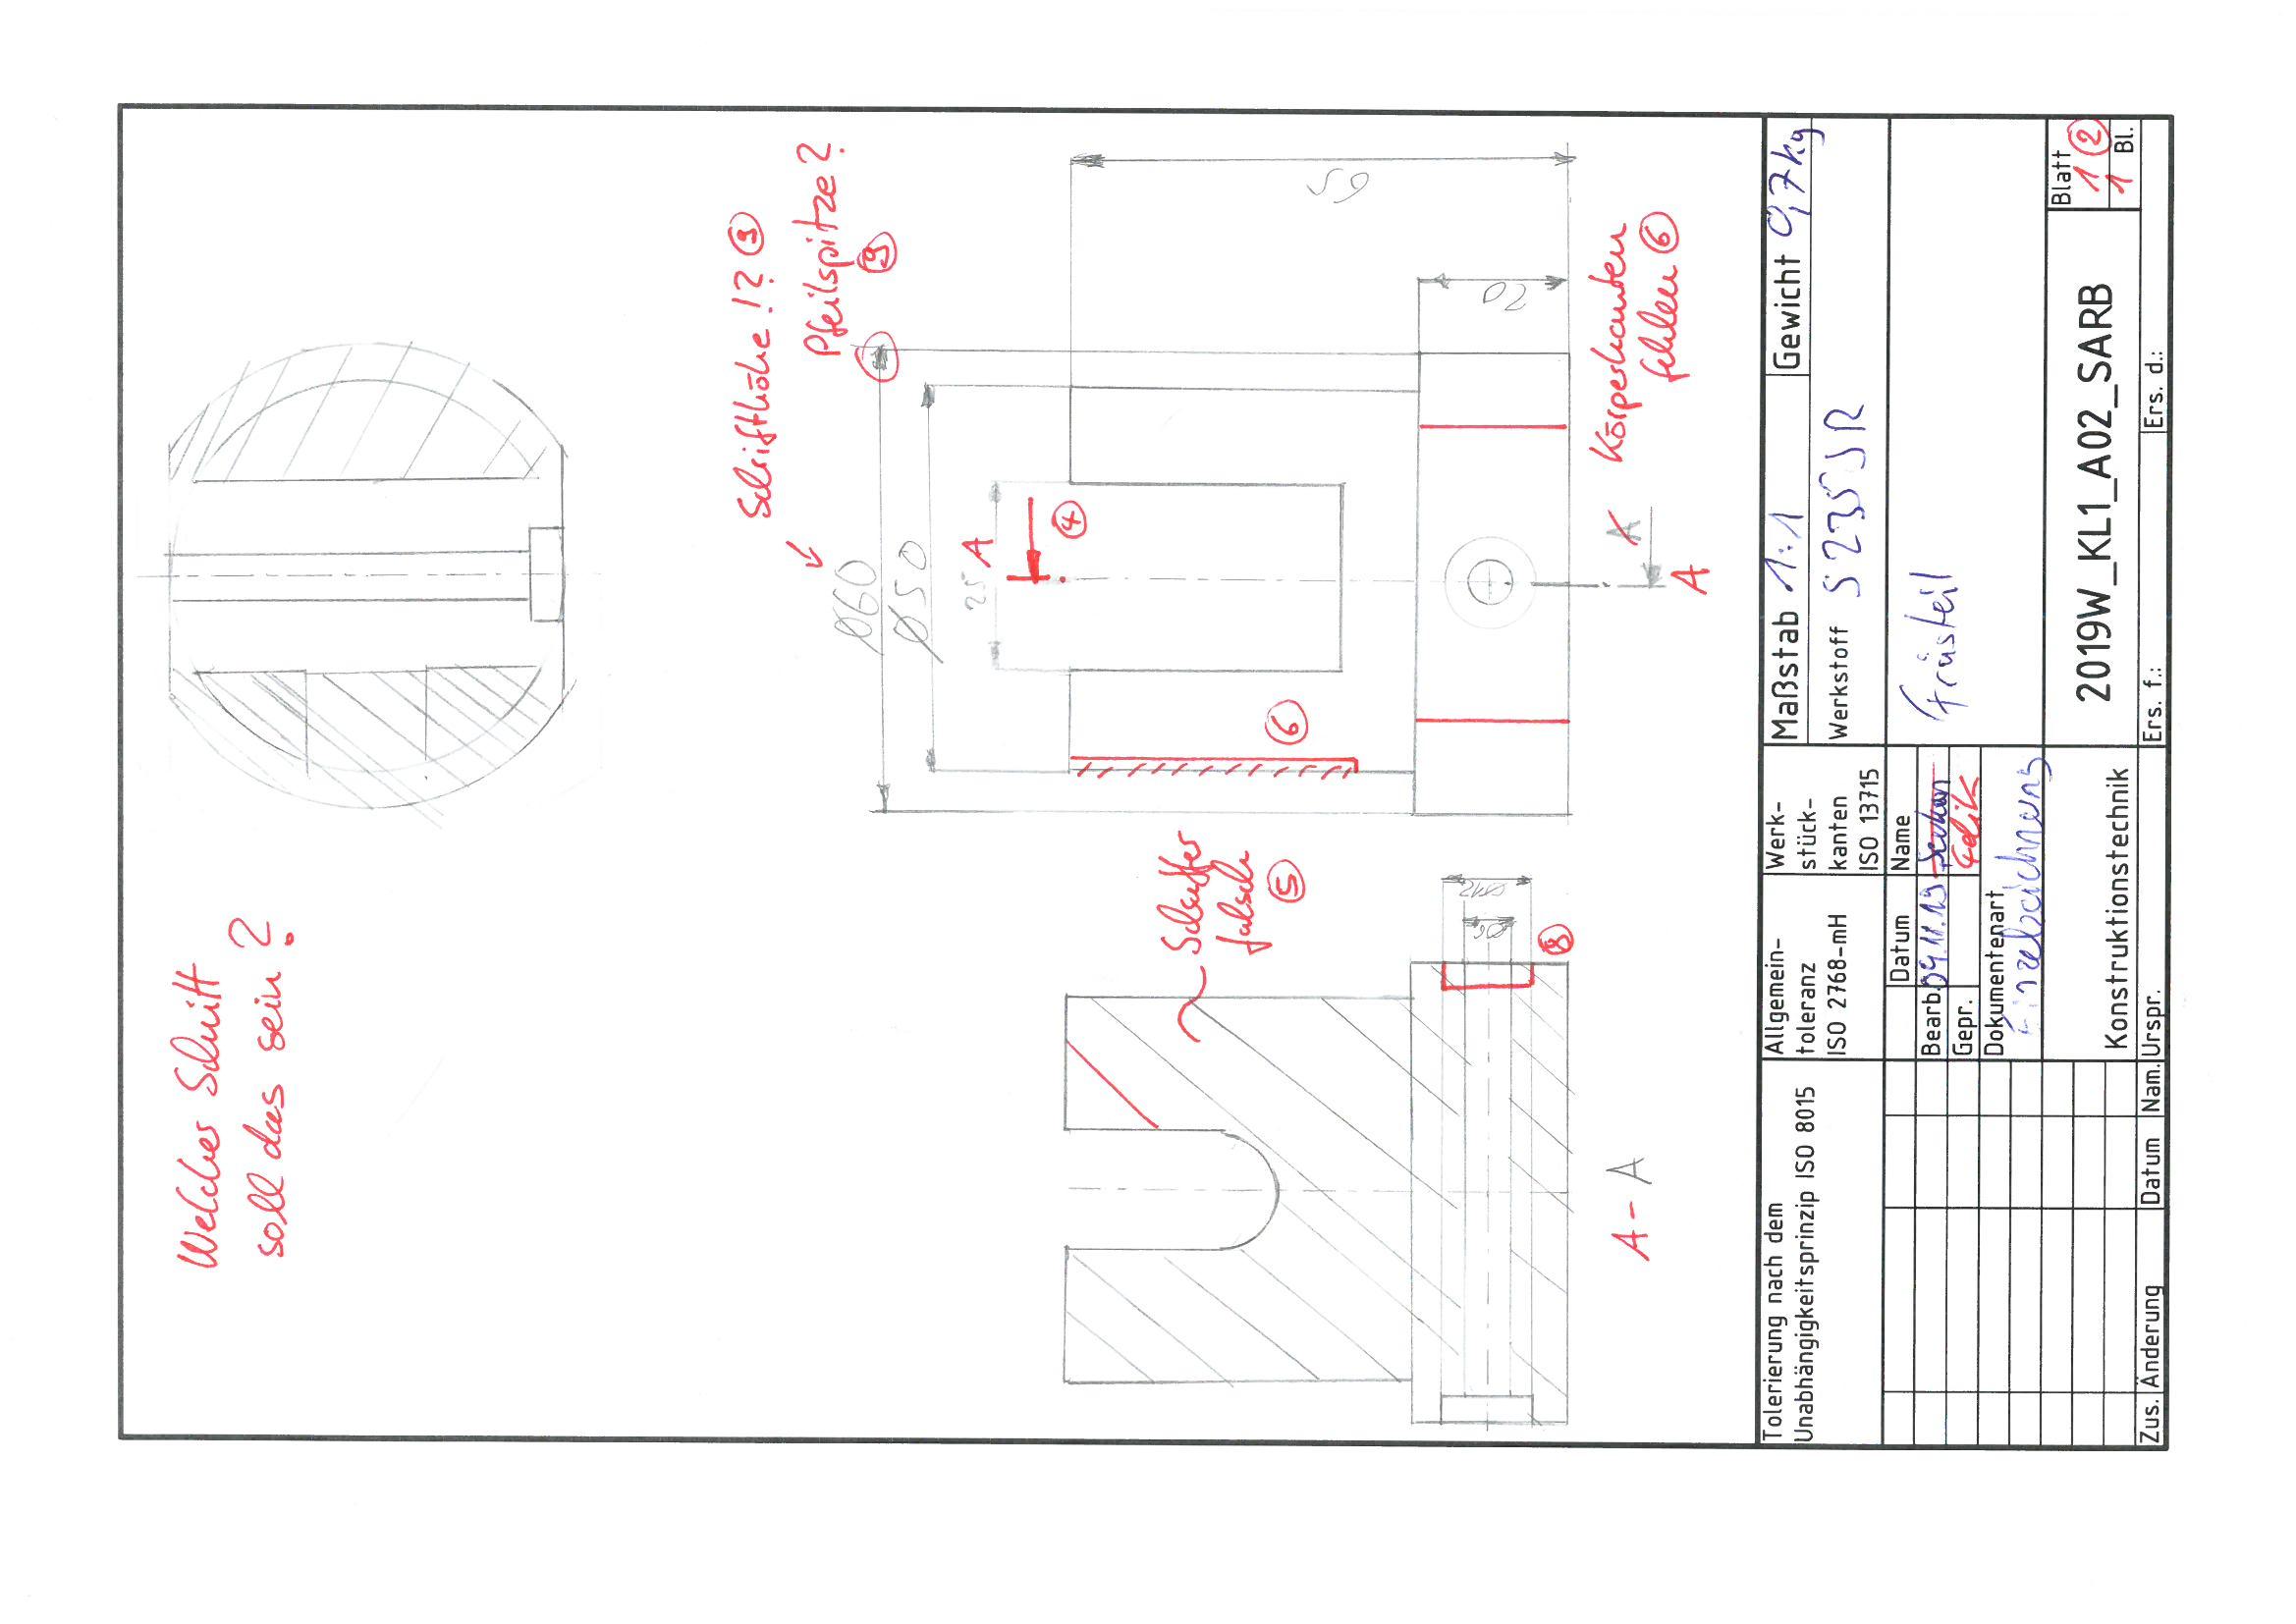 Welcher Schnitt
soll das sein?
Schrifthöhe!? 3
Pfeilspitze?
9
Ø60
Ø50
25
A
4
65
20
6
Körperkanten
fehlen 6
A
A
Schraffur
falsch
5
Ø12
Ø6
8
A - A
Tolerierung nach dem
Unabhängigkeitsprinzip ISO 8015
Allgemein-
toleranz
ISO 2768-mH
Werk-
stück-
kanten
ISO 13715
Maßstab 1:1
Gewicht 0,7kg
Werkstoff S235JR
Datum
Name
Bearb. 09.11.19
Gepr.
Dokumentenart
Einzelzeichnung
Frästeil
Konstruktionstechnik
2019W_KL1_A02_SARB
Blatt
1 2
1 Bl.
Zus.
Änderung
Datum
Nam.
Urspr.
Ers. f.:
Ers. d.: